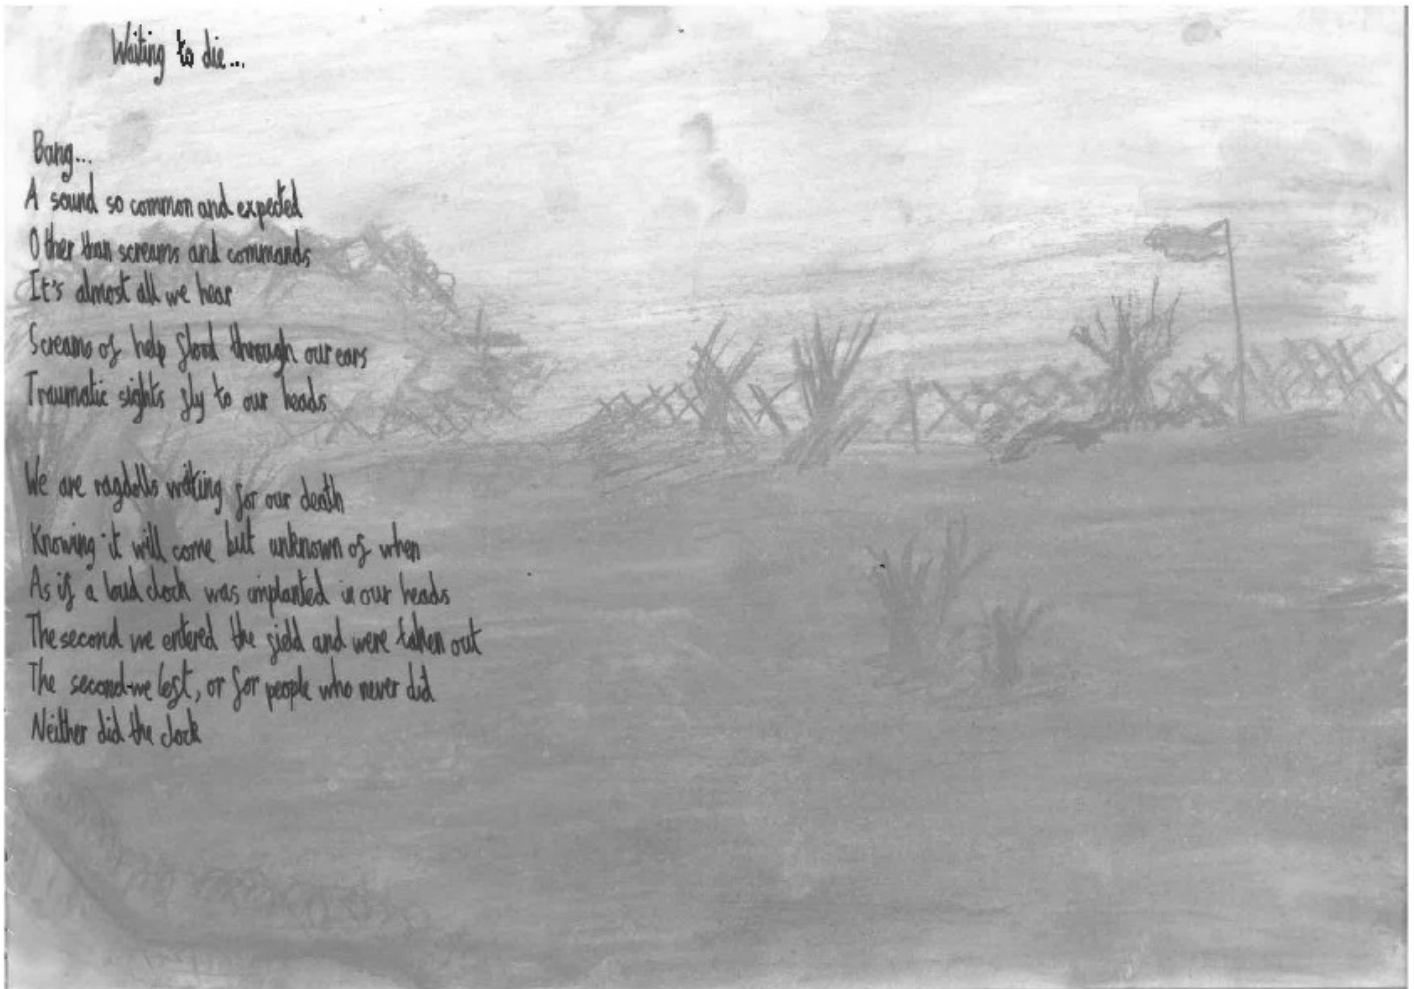 Waiting to die...
Bang...
A sound so common and expected
Other than screams and commands
It's almost all we hear
Screams of help flood through our ears
Traumatic sights fly to our heads
We are ragdolls waiting for our death
Knowing it will come but unknown of when
As if a loud clock was implanted in our heads
The second we entered the field and were taken out
The second we left, or for people who never did
Neither did the clock